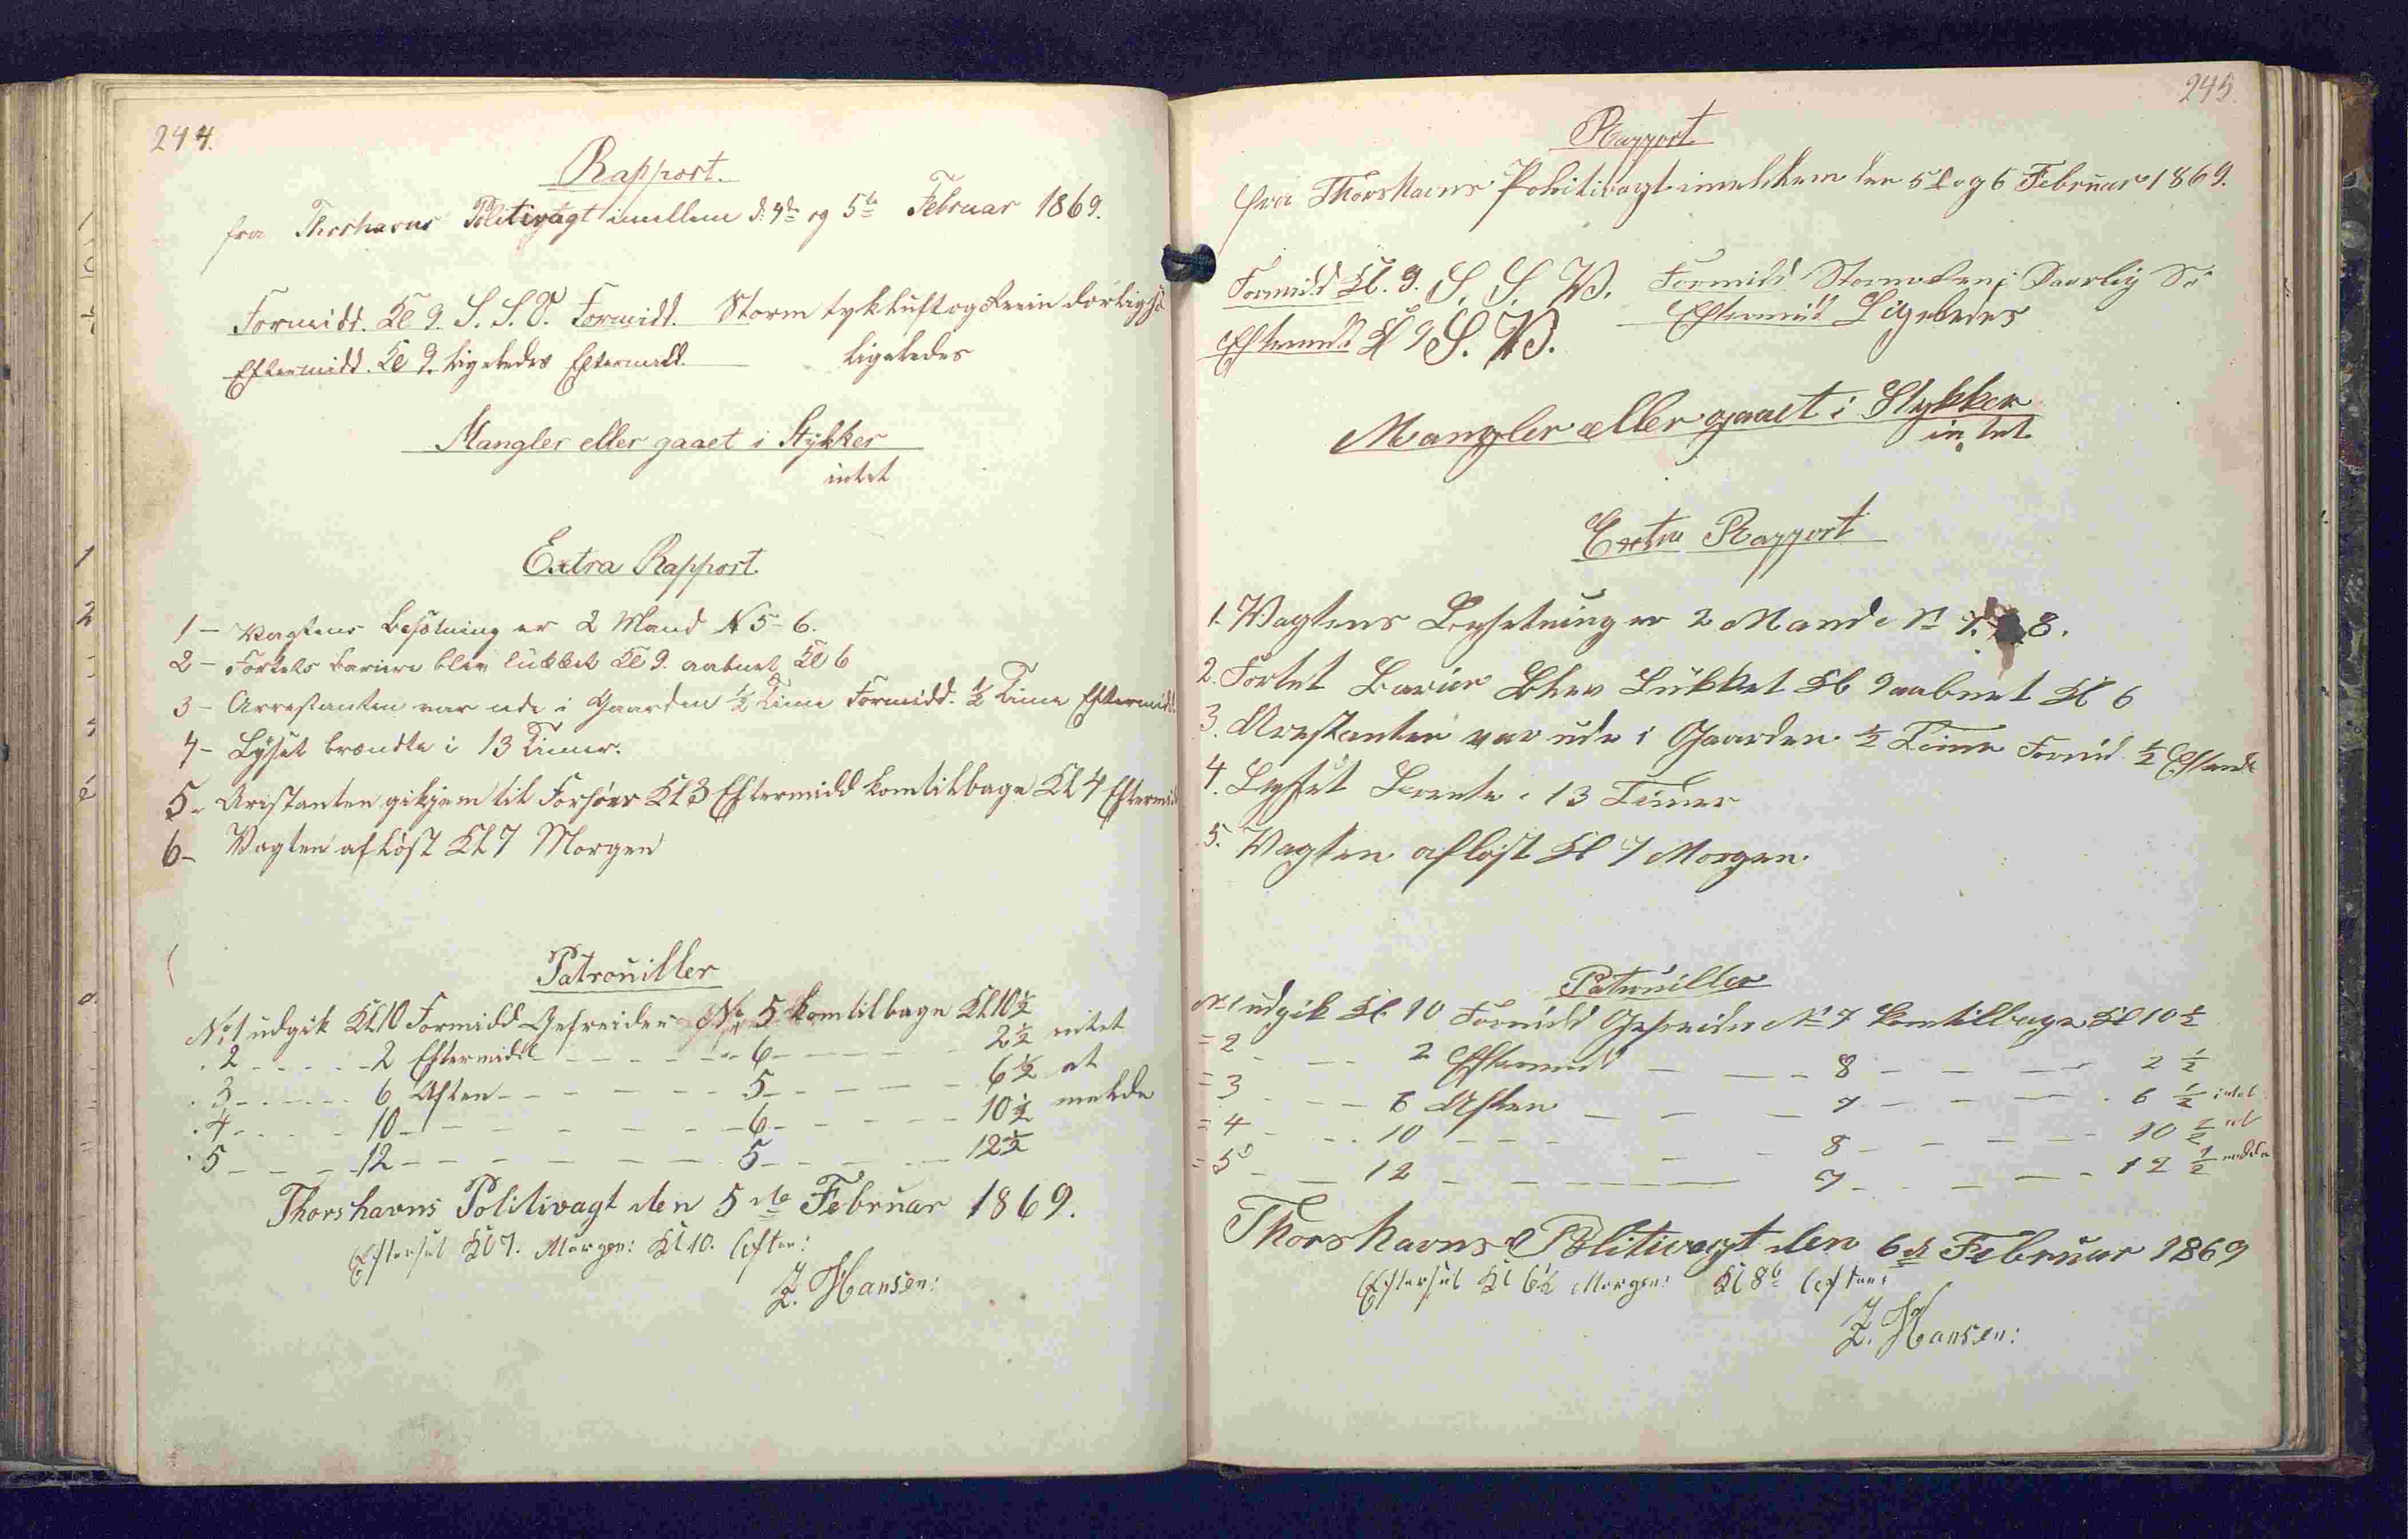 244.
Rapport.
fra Thorshavns Politivagt imellem d: 4de og 5te Februar 1869.
Formidd. Kl 9. S. S. V. Formidd. Storm tyk luft og Regn dorlig
Eftermidd. Kl 9. ligeledes Eftermidd. ligeledes
Mangler eller gaaet i Stykker
intet
Extra Rapport.
1 – Vagtens Besætning er 2 Mand N 5 - 6.
2 – Fortets bariere blev lükket Kl 9. aabnet Kl 6
3 – Arrestanten var ude i Gaarden ½ Time Formidd. ½ Time Eftermidd.
4 – Lÿset brændte i 13 Timer.
5 – Arestanten gik hjem til Forhöer Kl 3 Eftermidd kom tilbage Kl 4 Eftermidd
6 – Vagten aflöst Kl 7 Morgen
Patrouiller
No 1 udgik Kl 10 Formidd Gefreider No 5 kom tilbage Kl 10½
. 2 - - - - - 2 Eftermidd - - - - - 6 - - - - - 2½ intet
. 3 - - - - - 6 Aften - - - - - 5 - - - - - 6½ at
. 4 - - - - 10 - - - - - - 6 - - - - - 10½ melde
. 5 - - - - 12 - - - - - - 5 - - - - 12½
Thorshavns Politivagt den 5te Februar 1869.
Efterset Kl 7. Morgen: Kl 10. Aften:
Z. Hansen:
245.
Rapport
fra Thorshavns Politivagt imellem den 5t og 6 Februar 1869.
Formidd Kl. 9. S. S. V. Formidd Storm Regn Daarlig Sö
Eftermidd Kl 9 S. V. Eftermidd Ligeledes
Mangler eller gaaet i Stykker
intet
Extra Rapport
1. Vagtens Besetning er 2 Mand No 7. 8.
2. Fortet Bariær Blev Lükket Kl 9 aabnet Kl 6
3. Arestanten var ude i Gaarden ½ Time Formid ½ Eftermid
4. Lyset Brente i 13 Timer
5. Vagten aflöst Kl 7 Morgen.
Patrouiller
No 1 udgik Kl 10 Formidd Gefreider No 7 kom tilbage Kl 10½
= 2 - - - 2 Eftermid - - - 8 - - - - 2½
= 3 - - - 6 Aften - - - 7 - - - - 6½ intet
= 4 - - - 10 - - - - 8 - - - - 10½ at
= 5 - - 12 - - - - 7 - - - - 12½ melde
Thorshavns Politivagt den 6te Februar 1869
Efterset Kl 6½ Morgen: Kl 8½ Aften:
Z. Hansen: